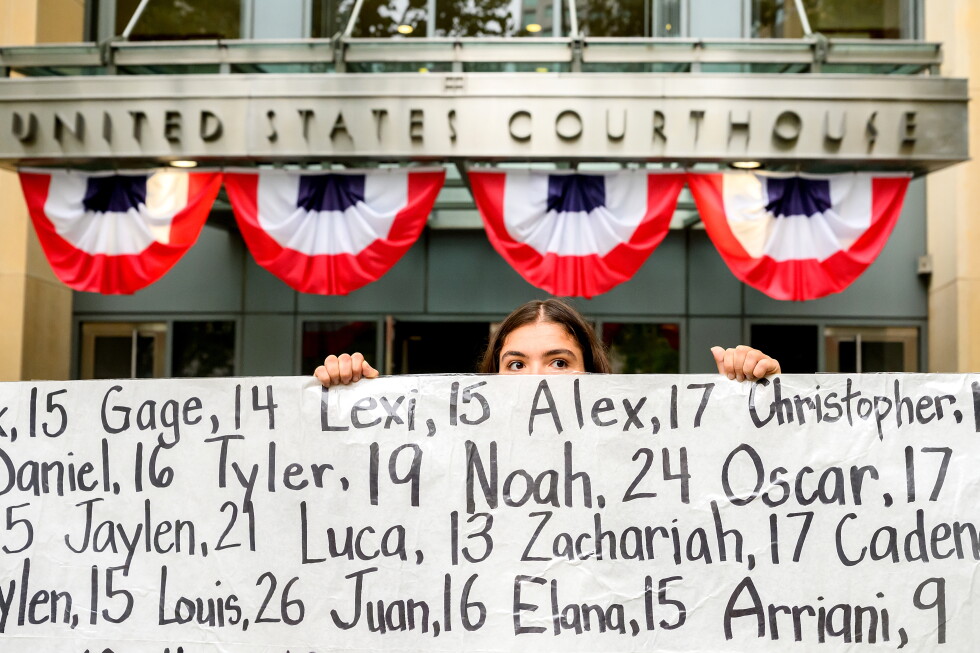 UNITED STATES COURTHOUSE
15 Gage, 14 Lexi, 15 Alex, 17 Christopher,
Daniel, 16 Tyler, 19 Noah, 24 Oscar, 17
Jaylen, 21 Luca, 13 Zachariah, 17 Caden
15 Louis, 26 Juan, 16 Elana, 15 Arriani, 9